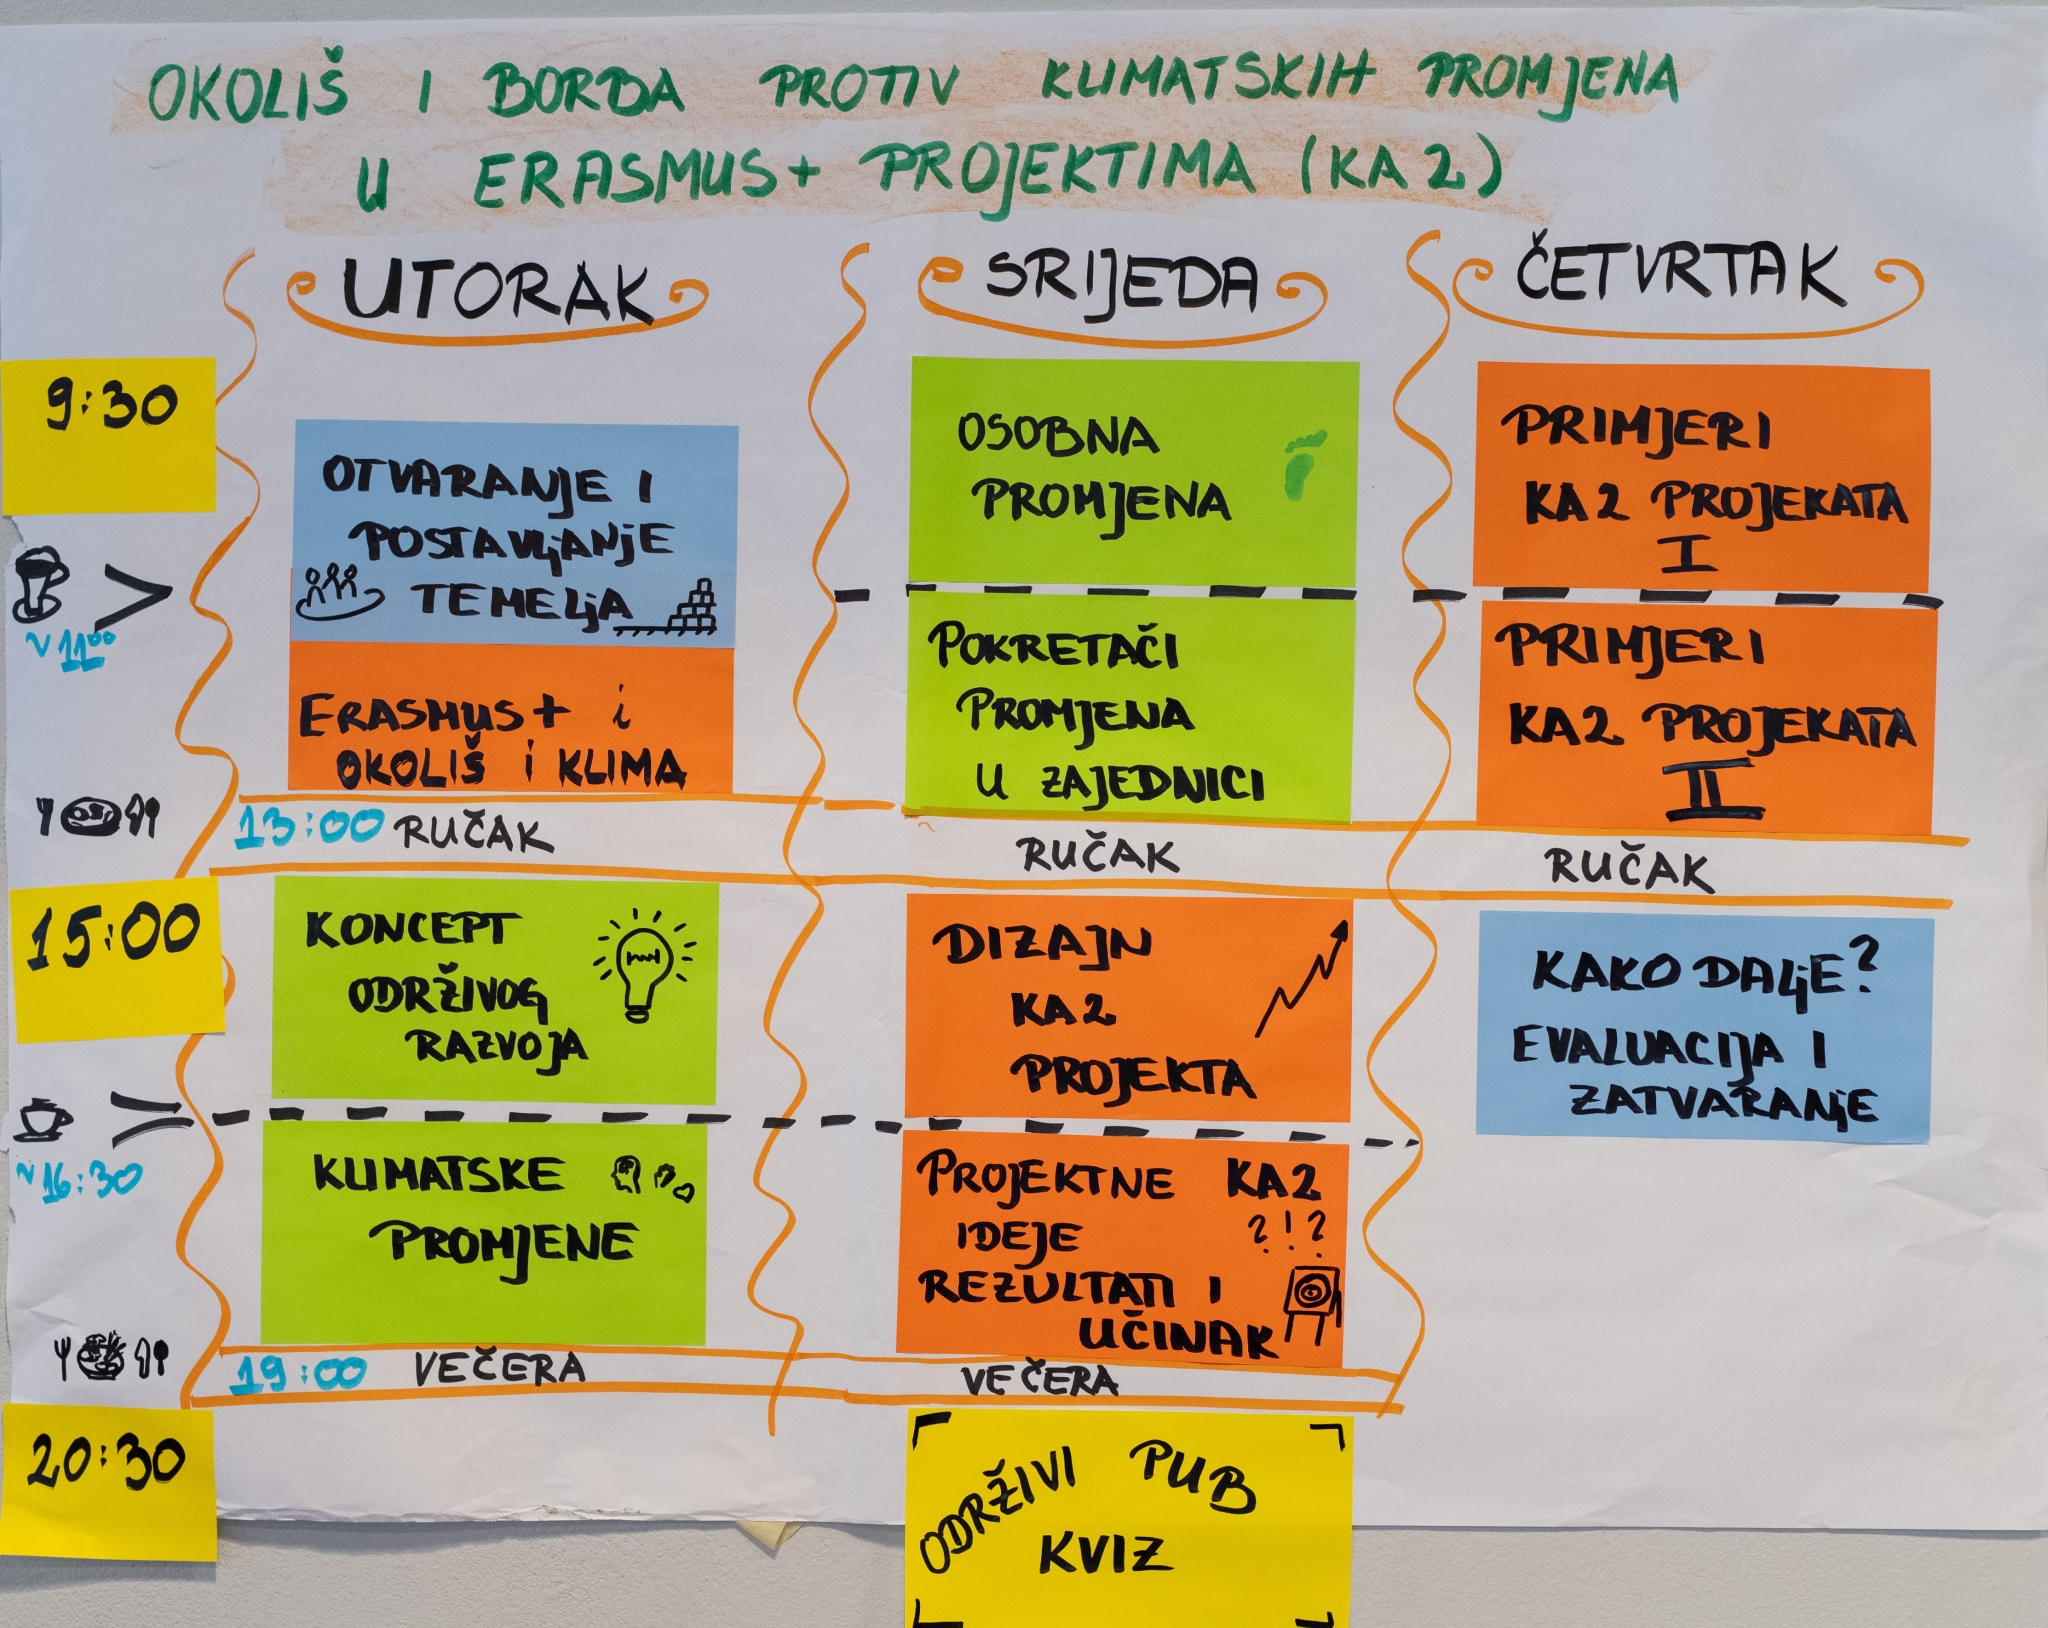 OKOLIŠ I BORBA PROTIV KLIMATSKIH PROMJENA
U ERASMUS+ PROJEKTIMA (KA2)
UTORAK
SRIJEDA
ČETVRTAK
9:30
OTVARANJE I
POSTAVLJANJE
TEMELJA
OSOBNA
PROMJENA
PRIMJERI
KA2 PROJEKATA
I
~11⁰⁰
ERASMUS+ i
OKOLIŠ i KLIMA
POKRETAČI
PROMJENA
U ZAJEDNICI
PRIMJERI
KA2 PROJEKATA
II
13:00 RUČAK
RUČAK
RUČAK
15:00
KONCEPT
ODRŽIVOG
RAZVOJA
DIZAJN
KA2
PROJEKTA
KAKO DALJE?
EVALUACIJA I
ZATVARANJE
~16:30
KLIMATSKE
PROMJENE
PROJEKTNE KA2
IDEJE ?!?
REZULTATI I
UČINAK
19:00 VEČERA
VEČERA
20:30
ODRŽIVI PUB
KVIZ